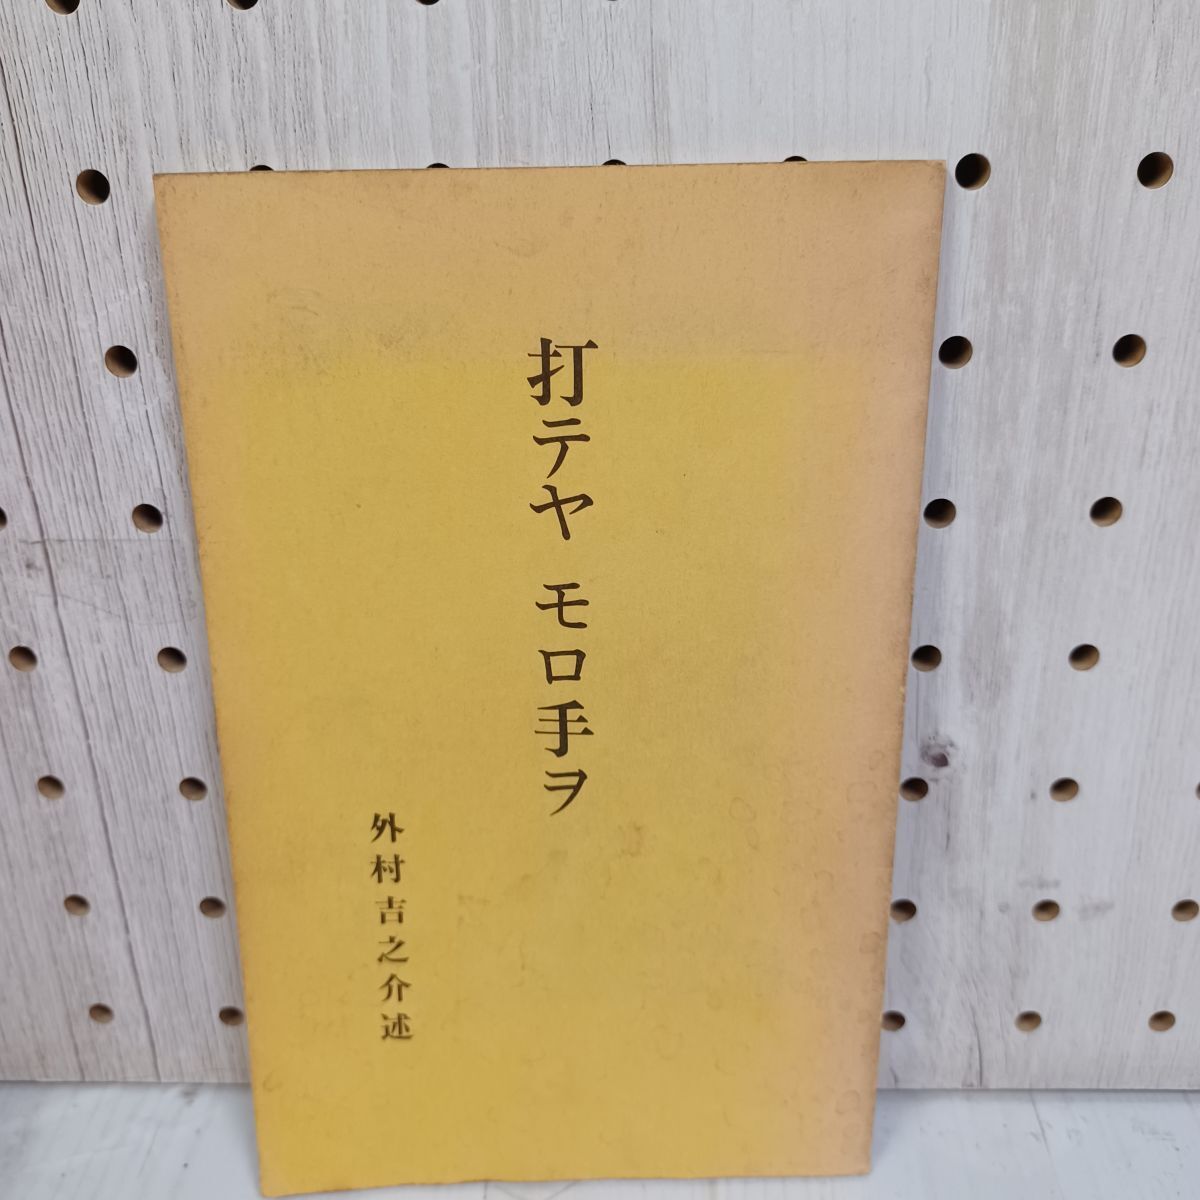 打テヤ モロ手ヲ
外村吉之介述